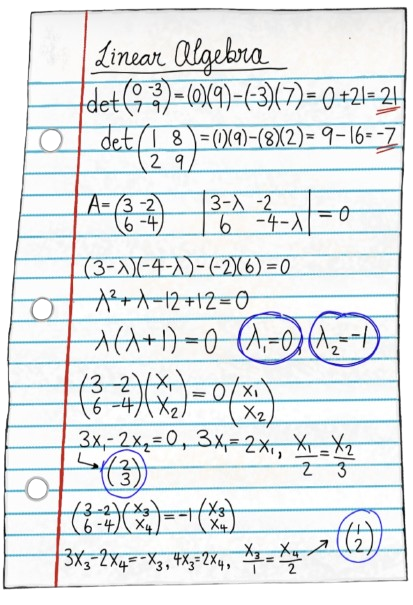 Linear Algebra
det(0 -3
7 9)=(0)(9)-(-3)(7)=0+21=21
det(1 8
2 9)=(1)(9)-(8)(2)=9-16=-7
A=(3 -2
6 -4) |3-λ -2
6 -4-λ|=0
(3-λ)(-4-λ)-(-2)(6)=0
λ²+λ-12+12=0
λ(λ+1)=0 λ₁=0, λ₂=-1
(3 -2
6 -4)(x₁
x₂)=0(x₁
x₂)
3x₁-2x₂=0, 3x₁=2x₁, x₁/2=x₂/3
(2
3)
(3 -2
6 -4)(x₃
x₄)=-1(x₃
x₄)
3x₃-2x₄=-x₃, 4x₃=2x₄, x₃/1=x₄/2 → (1
2)